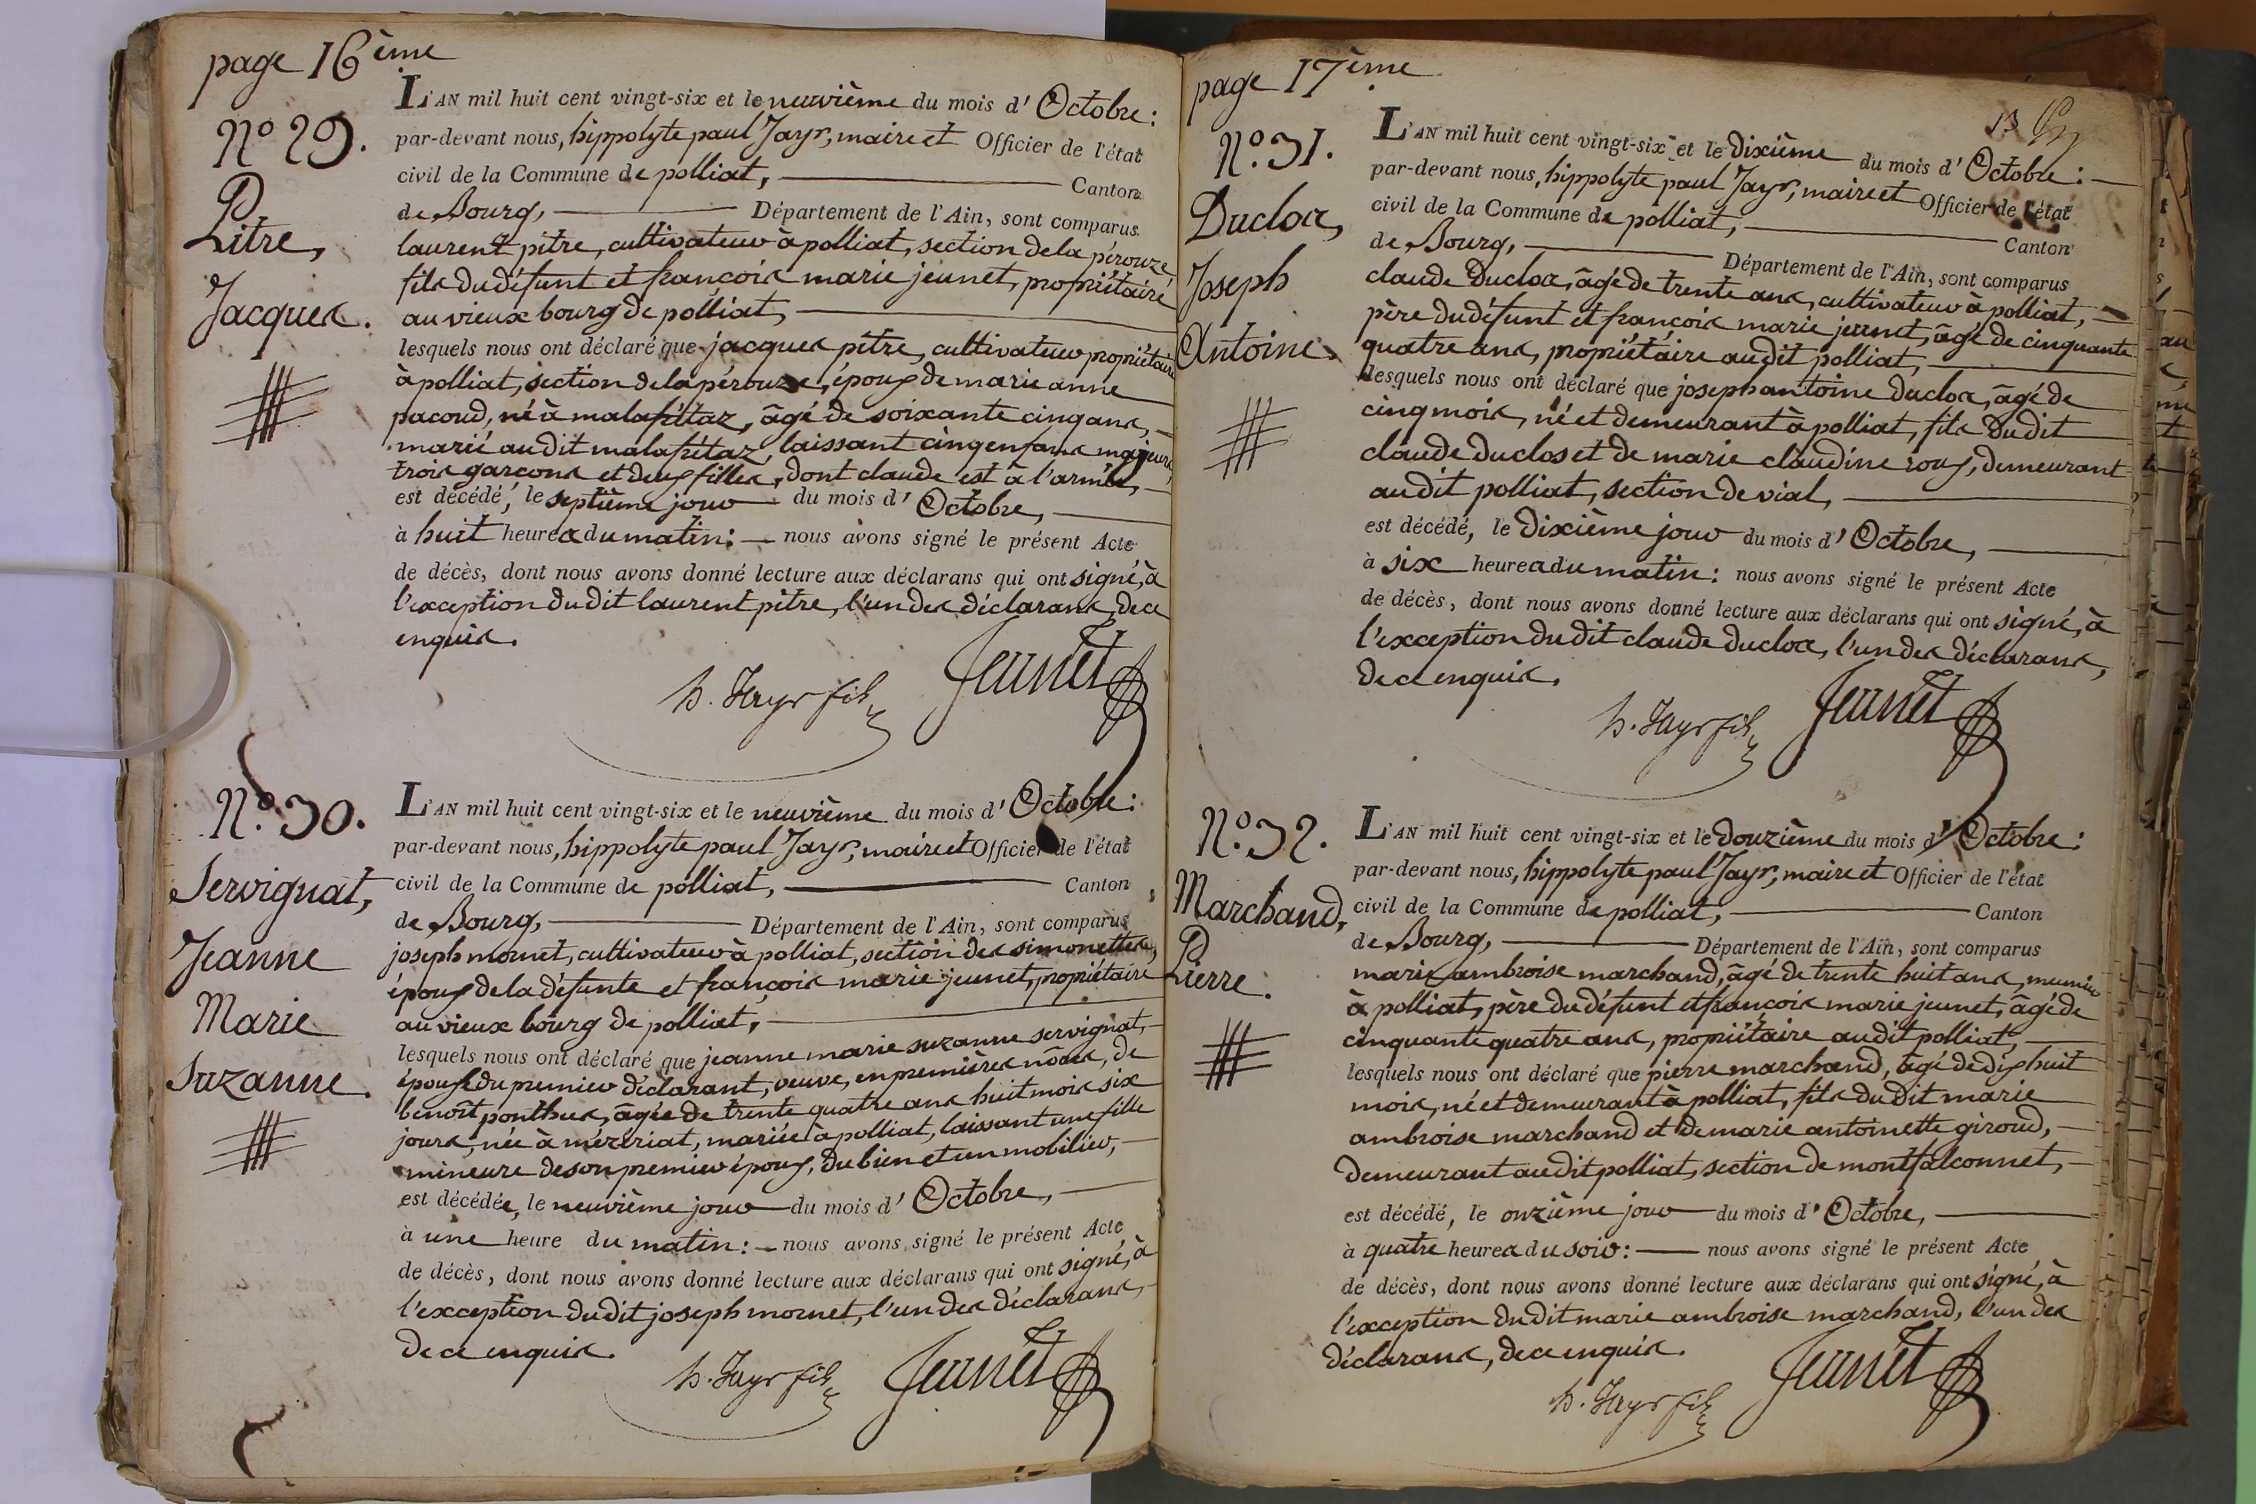 page 16ème
N° 29.
Pitre,
Jacques.
L'AN mil huit cent vingt-six et le neuvième du mois d'Octobre :
par-devant nous, hippolyte paul Jayr, maire et Officier de l'état
civil de la Commune de polliat, Canton
de Bourg, Département de l'Ain, sont comparus
laurent pitre, cultivateur à polliat, section de la pérouze
fils du défunt et françois marie jeunet, propriétaire
au vieux bourg de polliat,
lesquels nous ont déclaré que jacques pitre, cultivateur propriétaire
à polliat, section de la pérouze, époux de marie anne
pacoud, né à malafrétaz, âgé de soixante cinq ans,
marié au dit malafrétaz, laissant cinq enfans majeurs,
trois garçons et deux filles, dont claude est à l'armée,
est décédé, le septième jour du mois d'Octobre,
à huit heures du matin : nous avons signé le présent Acte
de décès, dont nous avons donné lecture aux déclarans qui ont signé, à
l'exception du dit laurent pitre, l'un des déclarans, de ce
enquis.
h. Jayr fils Jeunet
N° 30.
Servignat,
Jeanne
Marie
Suzanne.
L'AN mil huit cent vingt-six et le neuvième du mois d'Octobre :
par-devant nous, hippolyte paul Jayr, maire et Officier de l'état
civil de la Commune de polliat, Canton
de Bourg, Département de l'Ain, sont comparus
joseph mornet, cultivateur à polliat, section des simonettes,
époux de la défunte et françois marie jeunet, propriétaire
au vieux bourg de polliat,
lesquels nous ont déclaré que jeanne marie suzanne servignat,
épouse du premier déclarant, veuve, en premières nôces, de
benoît ponthus, âgée de trente quatre ans huit mois six
jours, née à mézériat, mariée à polliat, laissant une fille
mineure de son premier époux, du bien et un mobilier,
est décédée, le neuvième jour du mois d'Octobre,
à une heure du matin : nous avons signé le présent Acte
de décès, dont nous avons donné lecture aux déclarans qui ont signé, à
l'exception du dit joseph mornet, l'un des déclarans,
de ce enquis.
h. Jayr fils Jeunet
page 17ème
N° 31.
Duclos,
Joseph
Antoine.
L'AN mil huit cent vingt-six et le dixième du mois d'Octobre :
par-devant nous, hippolyte paul Jayr, maire et Officier de l'état
civil de la Commune de polliat, Canton
de Bourg, Département de l'Ain, sont comparus
claude Duclos, âgé de trente ans, cultivateur à polliat,
père du défunt et françois marie jeunet, âgé de cinquante
quatre ans, propriétaire au dit polliat,
lesquels nous ont déclaré que joseph antoine duclos, âgé de
cinq mois, né et demeurant à polliat, fils du dit
claude duclos et de marie claudine roux, demeurant
au dit polliat, section de vial,
est décédé, le dixième jour du mois d'Octobre,
à six heures du matin : nous avons signé le présent Acte
de décès, dont nous avons donné lecture aux déclarans qui ont signé, à
l'exception du dit claude duclos, l'un des déclarans,
de ce enquis.
h. Jayr fils Jeunet
N° 32.
Marchand,
Pierre.
L'AN mil huit cent vingt-six et le douzième du mois d'Octobre :
par-devant nous, hippolyte paul Jayr, maire et Officier de l'état
civil de la Commune de polliat, Canton
de Bourg, Département de l'Ain, sont comparus
marie ambroise marchand, âgé de trente huit ans, meunier
à polliat, père du défunt et françois marie jeunet, âgé de
cinquante quatre ans, propriétaire au dit polliat,
lesquels nous ont déclaré que pierre marchand, âgé de dix huit
mois, né et demeurant à polliat, fils du dit marie
ambroise marchand et de marie antoinette giroud,
demeurant au dit polliat, section de montfalconnet,
est décédé, le onzième jour du mois d'Octobre,
à quatre heures du soir : nous avons signé le présent Acte
de décès, dont nous avons donné lecture aux déclarans qui ont signé, à
l'exception du dit marie ambroise marchand, l'un des
déclarans, de ce enquis.
h. Jayr fils Jeunet